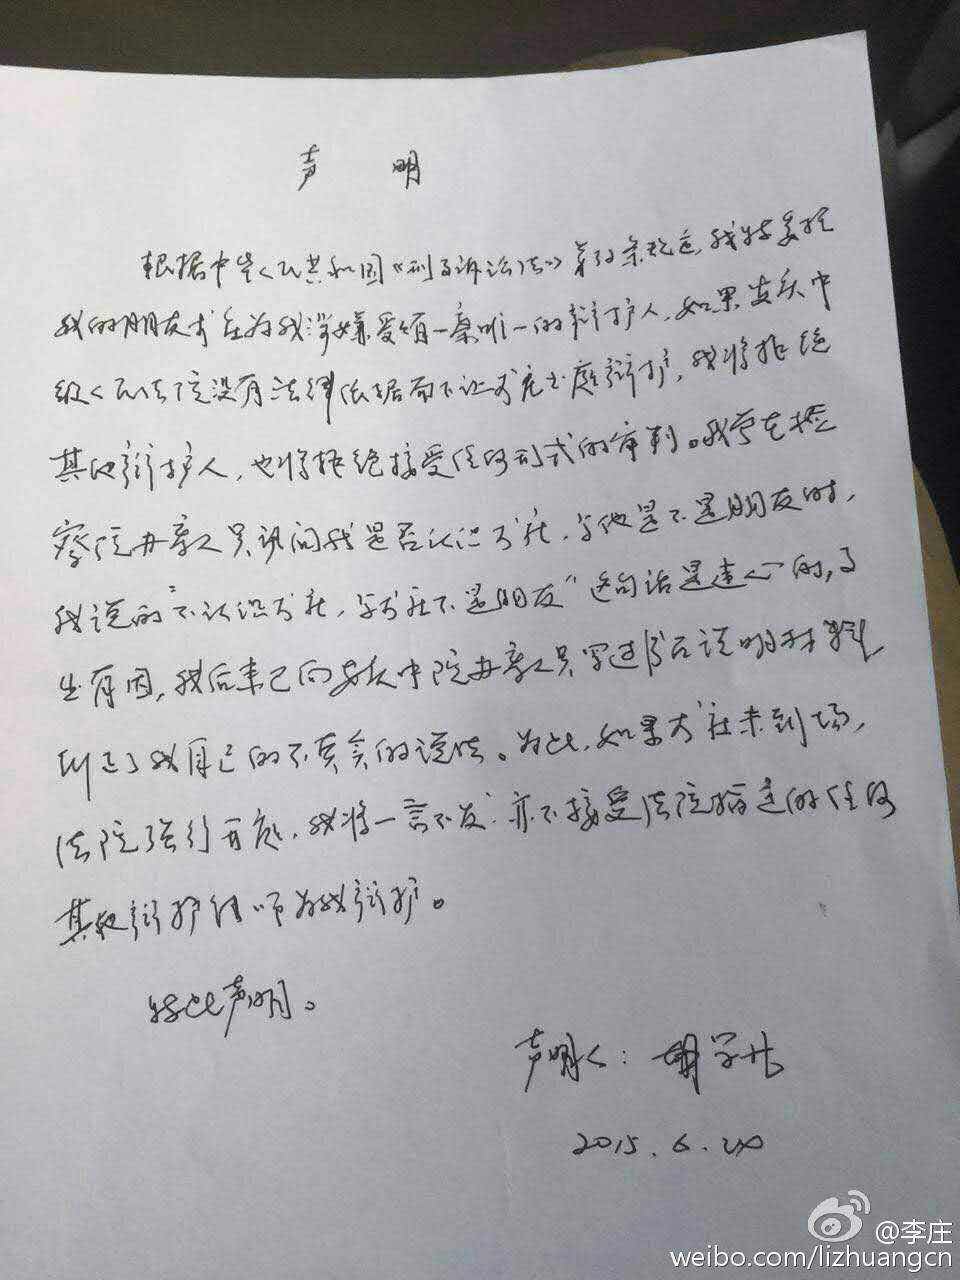 声 明
根据中华人民共和国《刑事诉讼法》第32条规定,我特委托
我的朋友 为我涉嫌受贿一案唯一的辩护人,如果安庆中
级人民法院没有法律依据而不让 出庭辩护,我将拒绝
其他辩护人,也将拒绝接受任何形式的审判。我曾在检
察院办案人员讯问我是否认识 ,与他是不是朋友时,
我说的"不认识 ,与 不是朋友"这句话是违心的,事
出有因,我后来已向安庆中院办案人员写过书面说明材料,
纠正了我自己的不真实的说法。为此,如果 未到场,
法院强行开庭,我将一言不发,亦不接受法院指定的任何
其他辩护律师为我辩护。
特此声明。
声明人:胡
2015.6.
@李庄
weibo.com/lizhuangcn